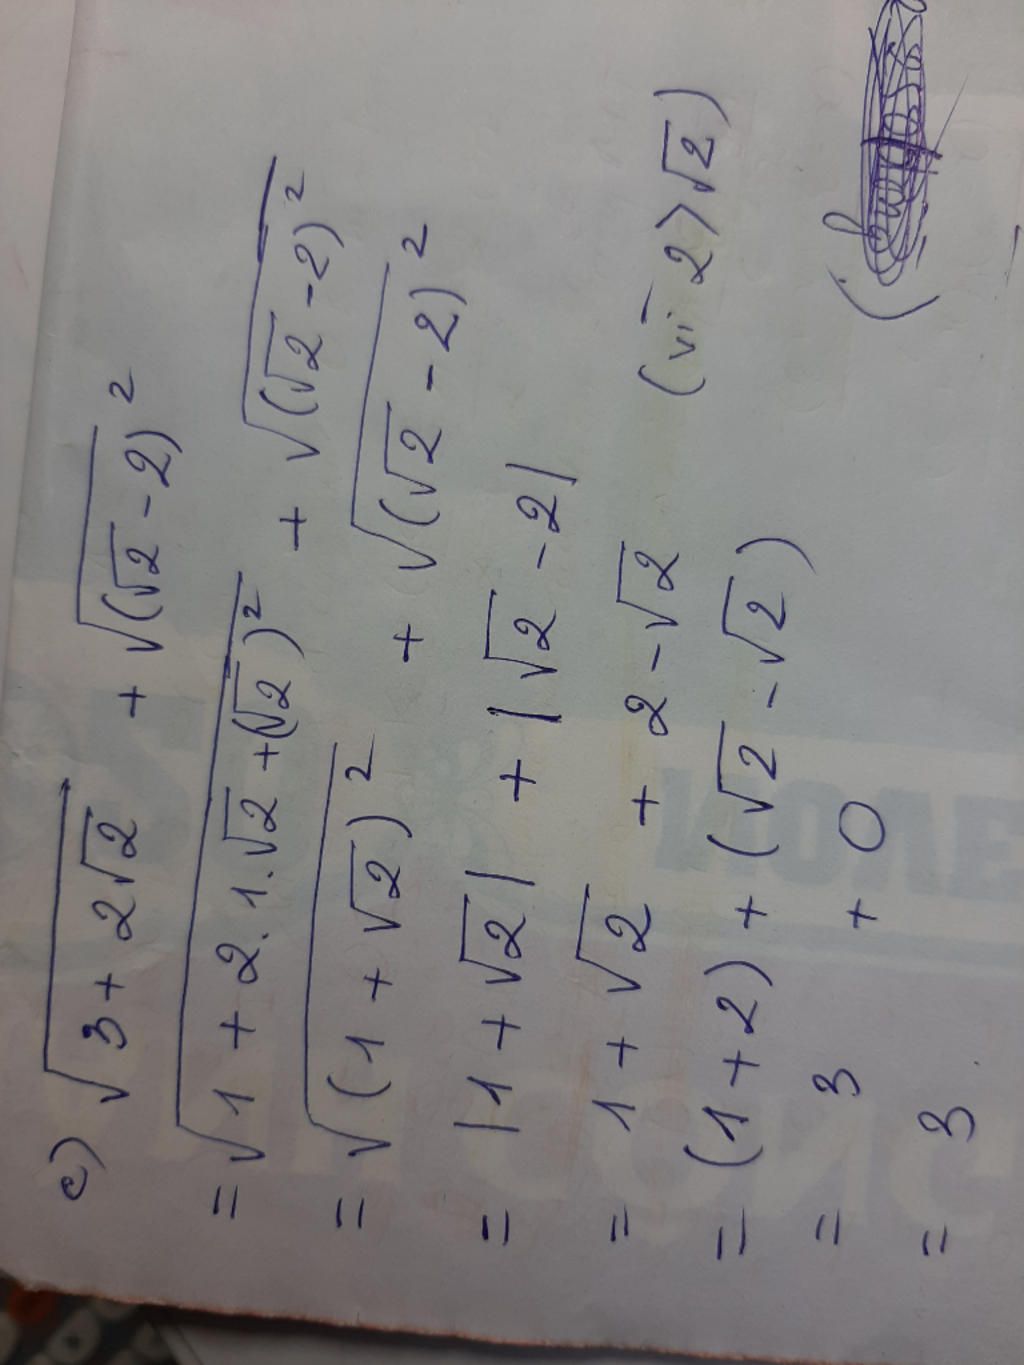 c) √(3 + 2√2) + √((√2 - 2)²)
= √(1 + 2.1.√2 + (√2)²) + √((√2 - 2)²)
= √((1 + √2)²) + √((√2 - 2)²)
= |1 + √2| + |√2 - 2|
= 1 + √2 + 2 - √2 (vì 2 > √2)
= (1 + 2) + (√2 - √2)
= 3 + 0
= 3